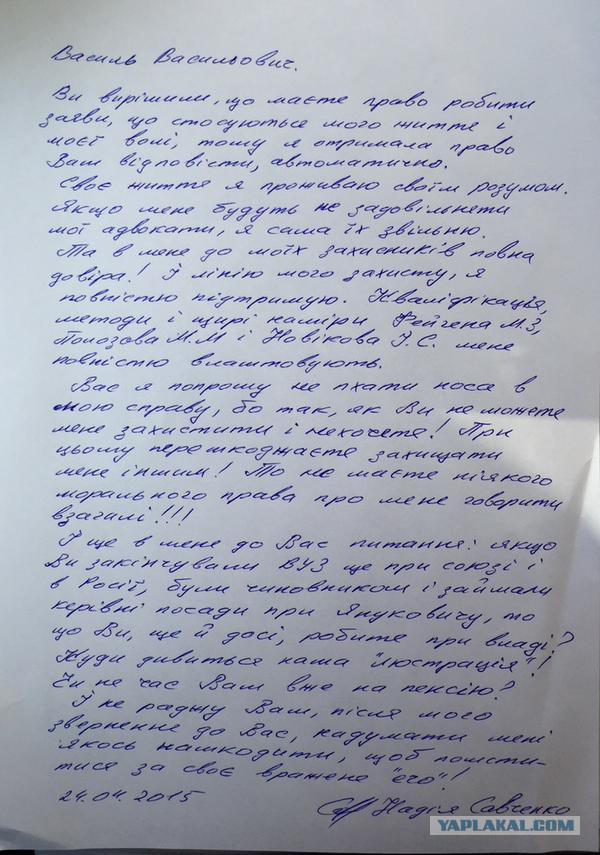 Василь Васильович.
Ви вирішили, що маєте право робити
заяви, що стосуються мого життє і
моєї волі, тому я отримала право
Вам відповісти, автоматично.
Своє життя я проживаю своїм розумом.
Якщо мене будуть не задовільнети
мої адвокати, я сама їх звільню.
Та в мене до моїх захисників повна
довіра! І лінію мого захисту, я
повністю підтримую. Кваліфікація,
методи і щирі наміри Фейгена М.З,
Полозова М.М і Новікова І.С. мене
повністю влаштовують.
Вас я попрошу не пхати носа в
мою справу, бо так, як Ви не можете
мене захистити і нехочете! При
цьому перешкоджаєте захищати
мене іншим! То не маєте ніякого
морального права про мене говорити
взагалі!!!
І ще в мене до Вас питання: якщо
Ви закінчували ВУЗ ще при союзі і
в Росії, були чиновником і займали
керівні посади при Януковичу, то
що Ви, ще й досі, робите при владі?
Куди дивиться наша "люстрація"!
Чи не час Вам вже на пенсію?
І не раджу Вам, після мого
зверненнє до Вас, надумати мені
якось нашкодити, щоб помсти-
тися за своє вражене "его"!
24.04.2015 Надія Савченко
YAPLAKAL.COM